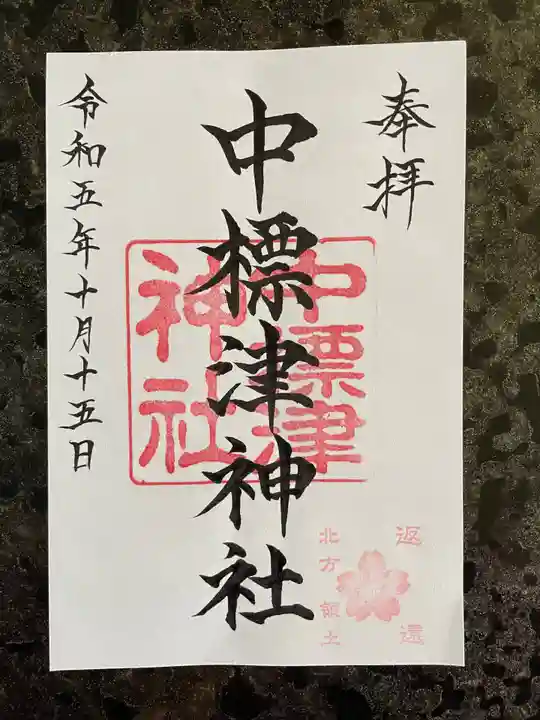 奉拝
中標津神社
中標津
神社
令和五年十月十五日
返還
北方領土